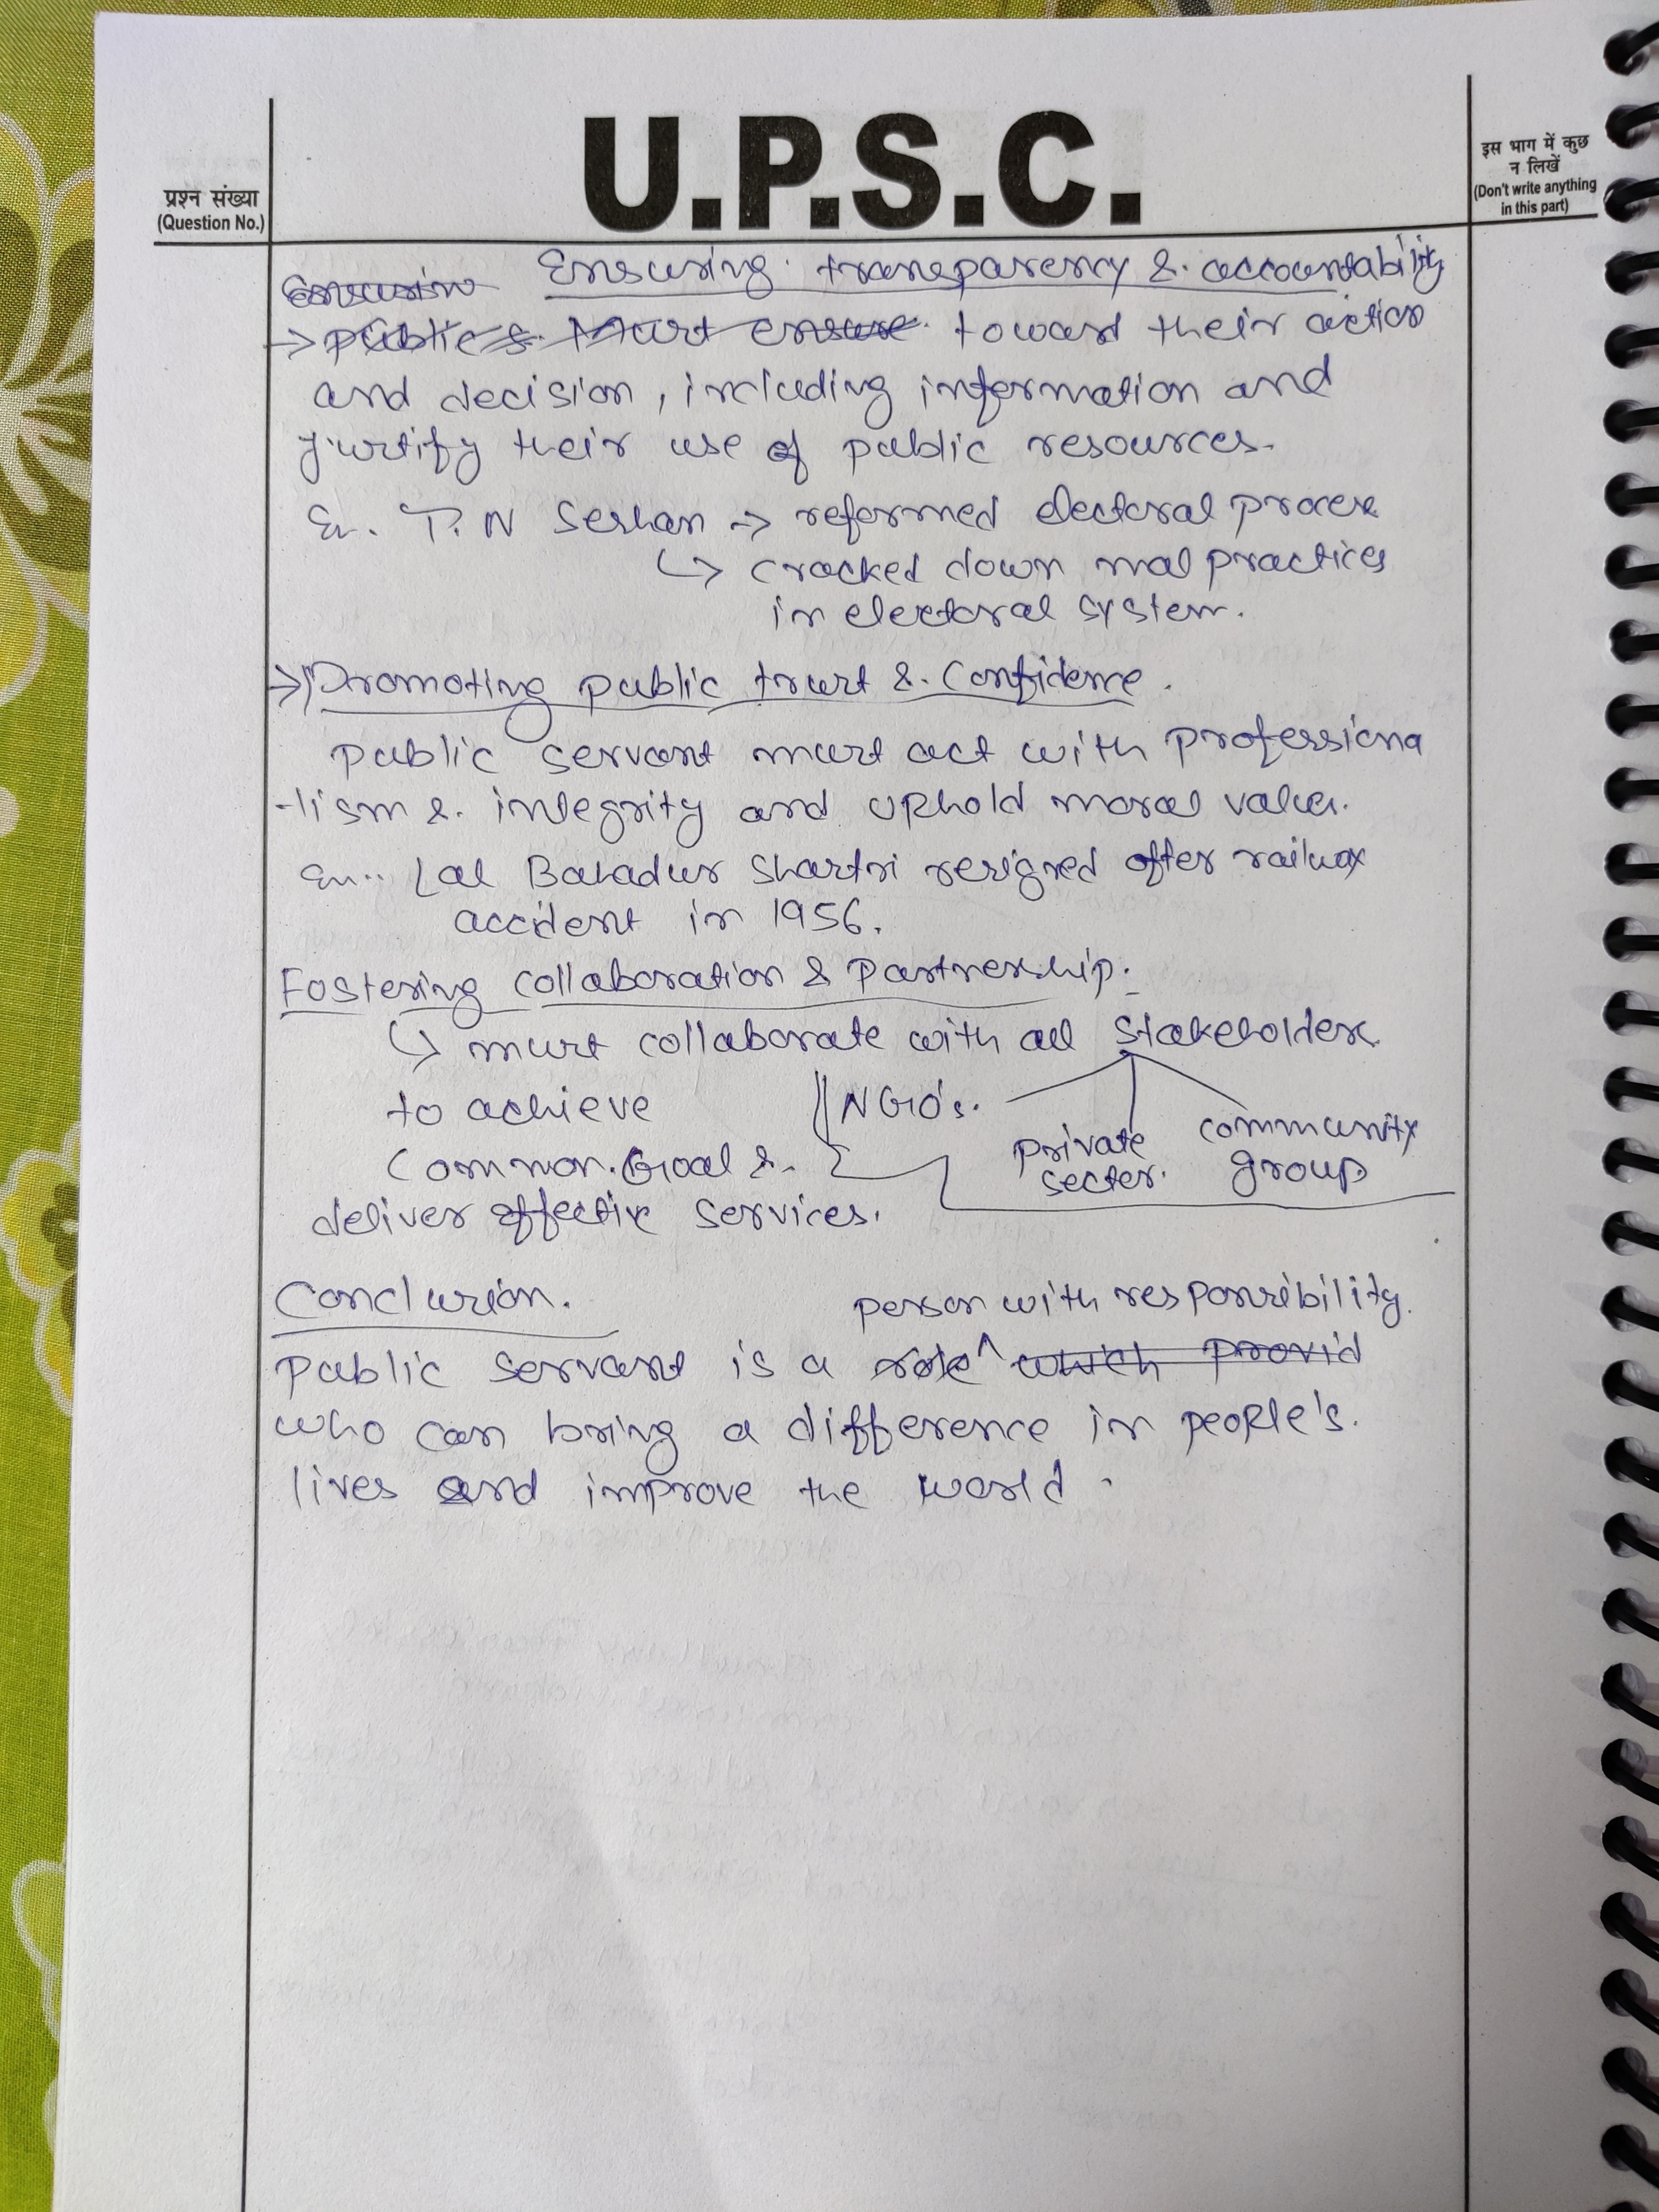 U.P.S.C.
प्रश्न संख्या
(Question No.)
इस भाग में कुछ
न लिखें
(Don't write anything
in this part)
Ensuring transparency & accountability
→ toward their action
and decision, including information and
justify their use of public resources.
Ex. T.N Seshan → reformed electoral process
↳ cracked down malpractices
in electoral system.
→ Promoting public trust & Confidence.
public servant must act with professiona
-lism & integrity and uphold moral values.
Ex.. Lal Bahadur Shastri resigned after railway
accident in 1956.
Fostering collaboration & Partnership.
↳ must collaborate with all Stakeholders
to achieve
NGO's.
private
sector.
community
group
Common Goal &
deliver effective services.
Conclusion.
person with responsibility.
Public servant is a
who can bring a difference in people's
lives and improve the world.